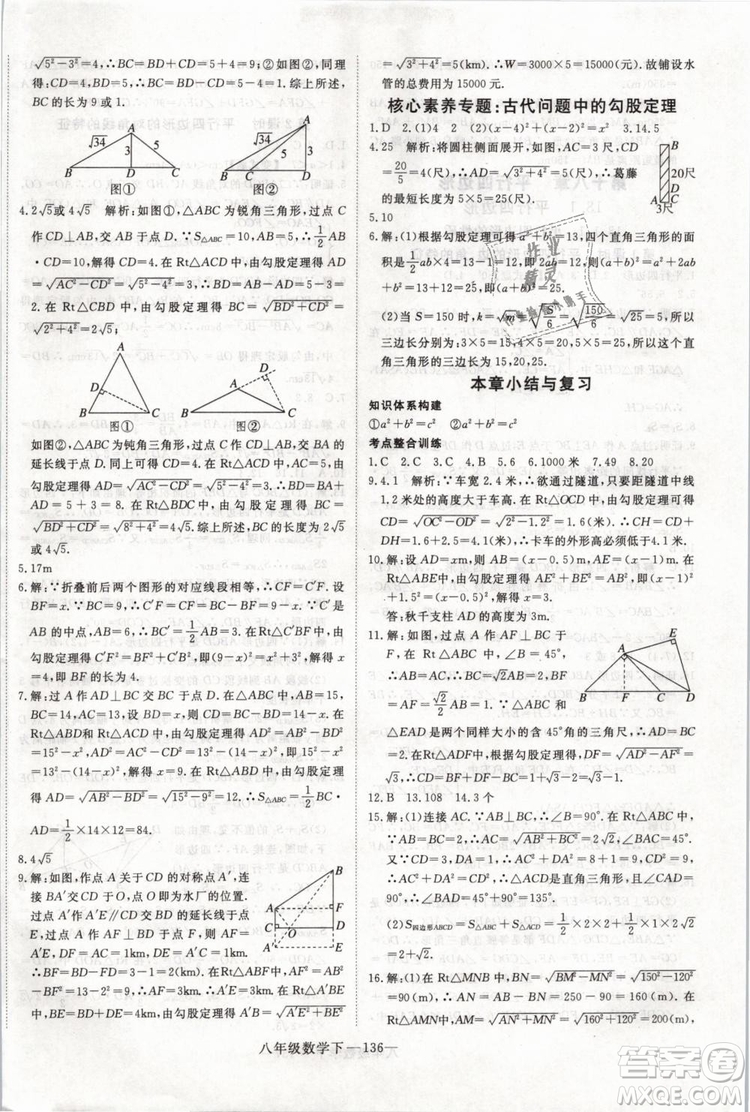 √(5²−3²)=4,∴BC=BD+CD=9.如图②,同理
得:CD=4,∴BD=5,∴BC=BD−CD=1.综上所述,
BC的长为9或1.
A
√34
3
5
B
D
C
图①
A
√34
3
5
B
C
D
图②
4.2√5或4√5 解析:如图①,△ABC为锐角三角形,过点
C作CD⊥AB,交AB于点D.∵S△ABC=10,AB=5,∴½AB
·CD=10,解得CD=4.在Rt△ACD中,由勾股定理得
AD=√(AC²−CD²)=√(5²−4²)=3,∴BD=AB−AD=5−3
=2.在Rt△CBD中,由勾股定理得BC=√(BD²+CD²)=
√(2²+4²)=2√5;
A
D
B
C
图①
D
A
B
C
图②
如图②,△ABC为钝角三角形,过点C作CD⊥AB,交BA的
延长线于点D.同上可得CD=4.在Rt△ACD中,AC=5,由
勾股定理得AD=√(AC²−CD²)=√(5²−4²)=3,∴BD=AB
+AD=5+3=8.在Rt△BDC中,由勾股定理得BC=
√(BD²+CD²)=√(8²+4²)=4√5.综上所述,BC的长度为2√5
或4√5.
5.17m
6.解:∵折叠前后两个图形的对应线段相等,∴CF=C′F.设
BF=x.∵BC=9,∴CF=9−x,∴C′F=9−x.由题意得BC′
=½AB=½CD=3.在Rt△C′BF中,∵C′F²=BF²+C′B²,由
勾股定理可得C′F²=BF²+C′B²,即(9−x)²=x²+3²,解得x=
4,即BF的长为4.
7.解:过点A作AD⊥BC,交BC于点D.在△ABC中,AB=15,
BC=14,AC=13,设BD=x,则CD=BC−BD=14−x.在
Rt△ABD和Rt△ACD中,由勾股定理得AD²=AB²−BD²=
15²−x²,AD²=AC²−CD²=13²−(14−x)²,∴15²−x²=
13²−(14−x)²,解得x=9.在Rt△ABD中,由勾股定理得
AD=√(AB²−BD²)=√(15²−9²)=12,∴S△ABC=½BC·
AD=½×14×12=84.
8.4√5
9.解:如图,作点A关于CD的对称点A′,连
接BA′交CD于点O,即点O为水厂的位置.
过点A′作A′E∥CD交BD的延长线于点E,
过点A作AF⊥BD于点F,则AF=A′E,DF
=AC=1km,DE=A′C=1km.∵BD=3km,
∴BF=BD−FD=3−1=2(km).在Rt△ABF中,AF²=AB²
−BF²=(√13)²−2²=9,∴AF=3km,∴A′E=3km.在Rt△A′BE
中,BE=BD+DE=4km,由勾股定理得A′B=√(BE²+A′E²)=
√(3²+4²)=5(km).∴W=3000×5=15000(元).故铺设水
管的总费用为15000元.
核心素养专题:古代问题中的勾股定理
1.D 2.(1)4 2 (2)x²+4²=(x+2)² 3.14.5
4.25 解析:将圆柱侧面展开,如图,AC=3×5=15(尺),CD=
20/5=4(尺),∴AD=√(3²+4²)=5(尺),∴葛藤
的最短长度为5×5=25(尺).
20尺
3尺
5.10
6.解:(1)根据勾股定理可得a²+b²=13,四个直角三角形的面
积是½ab×4=13−1=12,即2ab=12,则(a+b)²=a²+2ab
+b²=13+12=25.
(2)当S=150时,k=√m=√(S/6)=√(150/6)=√25=5,所以
三边长分别为3×5=15,4×5=20,5×5=25,所以这个直
角三角形的三边长为15,20,25.
本章小结与复习
知识体系构建
①a²+b²=c² ②a²+b²=c²
考点整合训练
1.C 2.C 3.C 4.B 5.6 6.1000米 7.49 8.20
9.4.1 解析:∵车宽2.4米,∴欲通过隧道,只要距隧道中线
1.2米处的高度大于车高.在Rt△OCD中,由勾股定理得CD
=√(OC²−OD²)=√(2²−1.2²)=1.6(米),∴CH=CD+
DH=1.6+2.5=4.1(米),∴卡车的外形高必须低于4.1米.
10.解:设AD=xm,则由题意可得AB=(x−0.5)m,AE=(x−
1)m.在Rt△ABE中,AE²+BE²=AB²,即(x−1)²+1.5²=
(x−0.5)²,解得x=3.
答:秋千支柱AD的高度为3m.
11.解:如图,过点A作AF⊥BC于
F.在Rt△ABC中,∠B=45°,
∴BC=√2AB=2,BF=AF=½BC
=1.∵
两个同样大小的含45°角的三角尺,
∴AD=BC=2.在Rt△ADF中,根据勾股定理得,DF=√(AD²−AF²)
=√3,∴CD=BF+DF−BC=1+√3−2=√3−1.
E
A
B
F
C
D
12.B 13.108 14.3个
15.解:(1)连接AC.∵AB=BC=2,∠B=90°,∴AC=2√2,
∠BAC=45°.又∵CD=3,DA=1,∴AC²+DA²=8+1=9,
CD²=9,∴AC²+DA²=CD²,∴△ACD是直角三角形,
∴∠CAD=90°,∴∠DAB=45°+90°=135°.
(2)S四边形ABCD=S△ABC+S△ACD=½×2×2+½×1×2√2
=2+√2.
16.解:(1)在Rt△MNB中,BN=√(BM²−MN²)=√(150²−120²)
=90(m),∴AN=AB−BN=250−90=160(m).在Rt
△AMN中,AM=√(AN²+MN²)=√(160²+120²)=200(m),
八年级数学下—136—
作业
精灵
答案圈
MXQE.COM